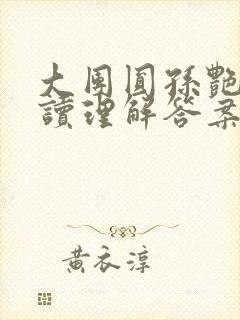 大周圓孫艷
讀理解答案
黃衣淳